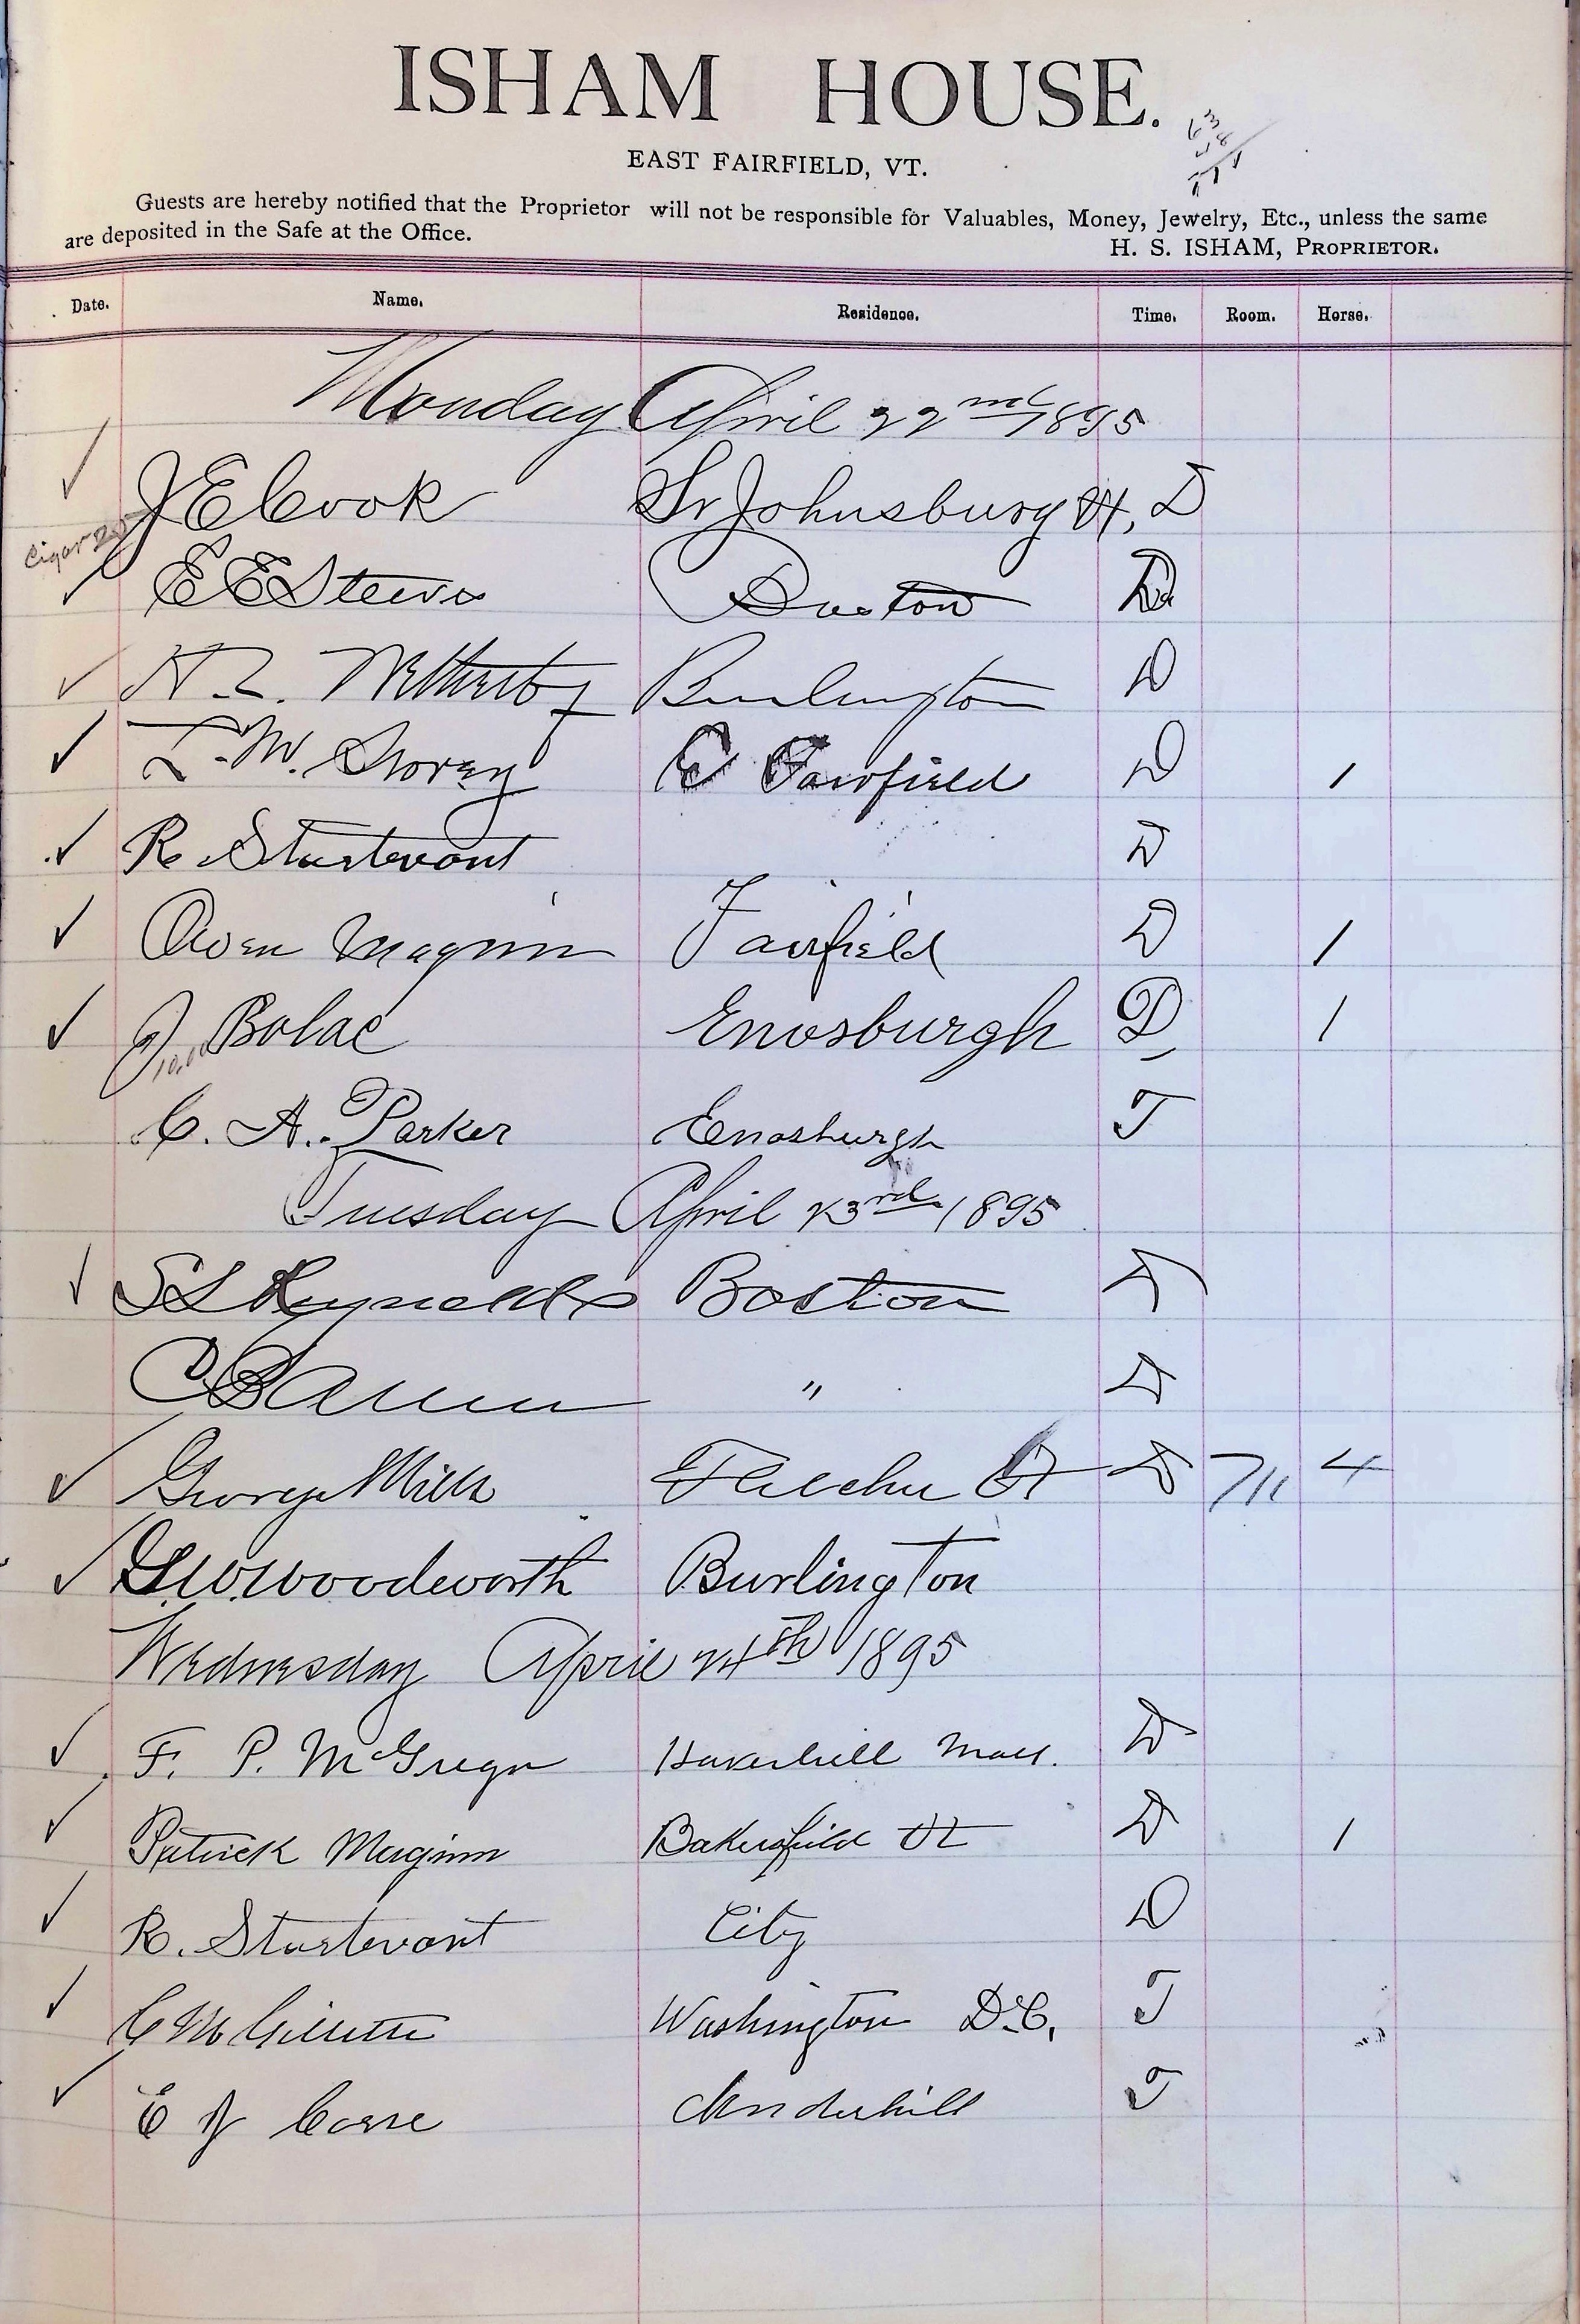 ISHAM HOUSE.
EAST FAIRFIELD, VT.
Guests are hereby notified that the Proprietor will not be responsible for Valuables, Money, Jewelry, Etc., unless the same
are deposited in the Safe at the Office.
H. S. ISHAM, PROPRIETOR.
Date. Name. Residence. Time. Room. Horse.
Monday April 22nd 1895
J E Cook St Johnsbury Vt, D
Cigar
E E Boston D
Burlington D
L. M. Storey E Fairfield D 1
R. Sturtevant D
Owen Maginn Fairfield D 1
J. Bolac Enosburgh D 1
10.00
C. A. Parker Enosburgh T
Tuesday April 23rd 1895
S L Reynolds Boston D
C B " D
George Mills Fletcher Vt D 7/11 4
G. W. Woodworth Burlington
Wednesday April 24th 1895
F. P. McGregor Haverhill Mass. D
Patrick Maginn Bakersfield Vt D 1
R. Sturtevant City D
C M Gillette Washington D.C. T
E Underhill T